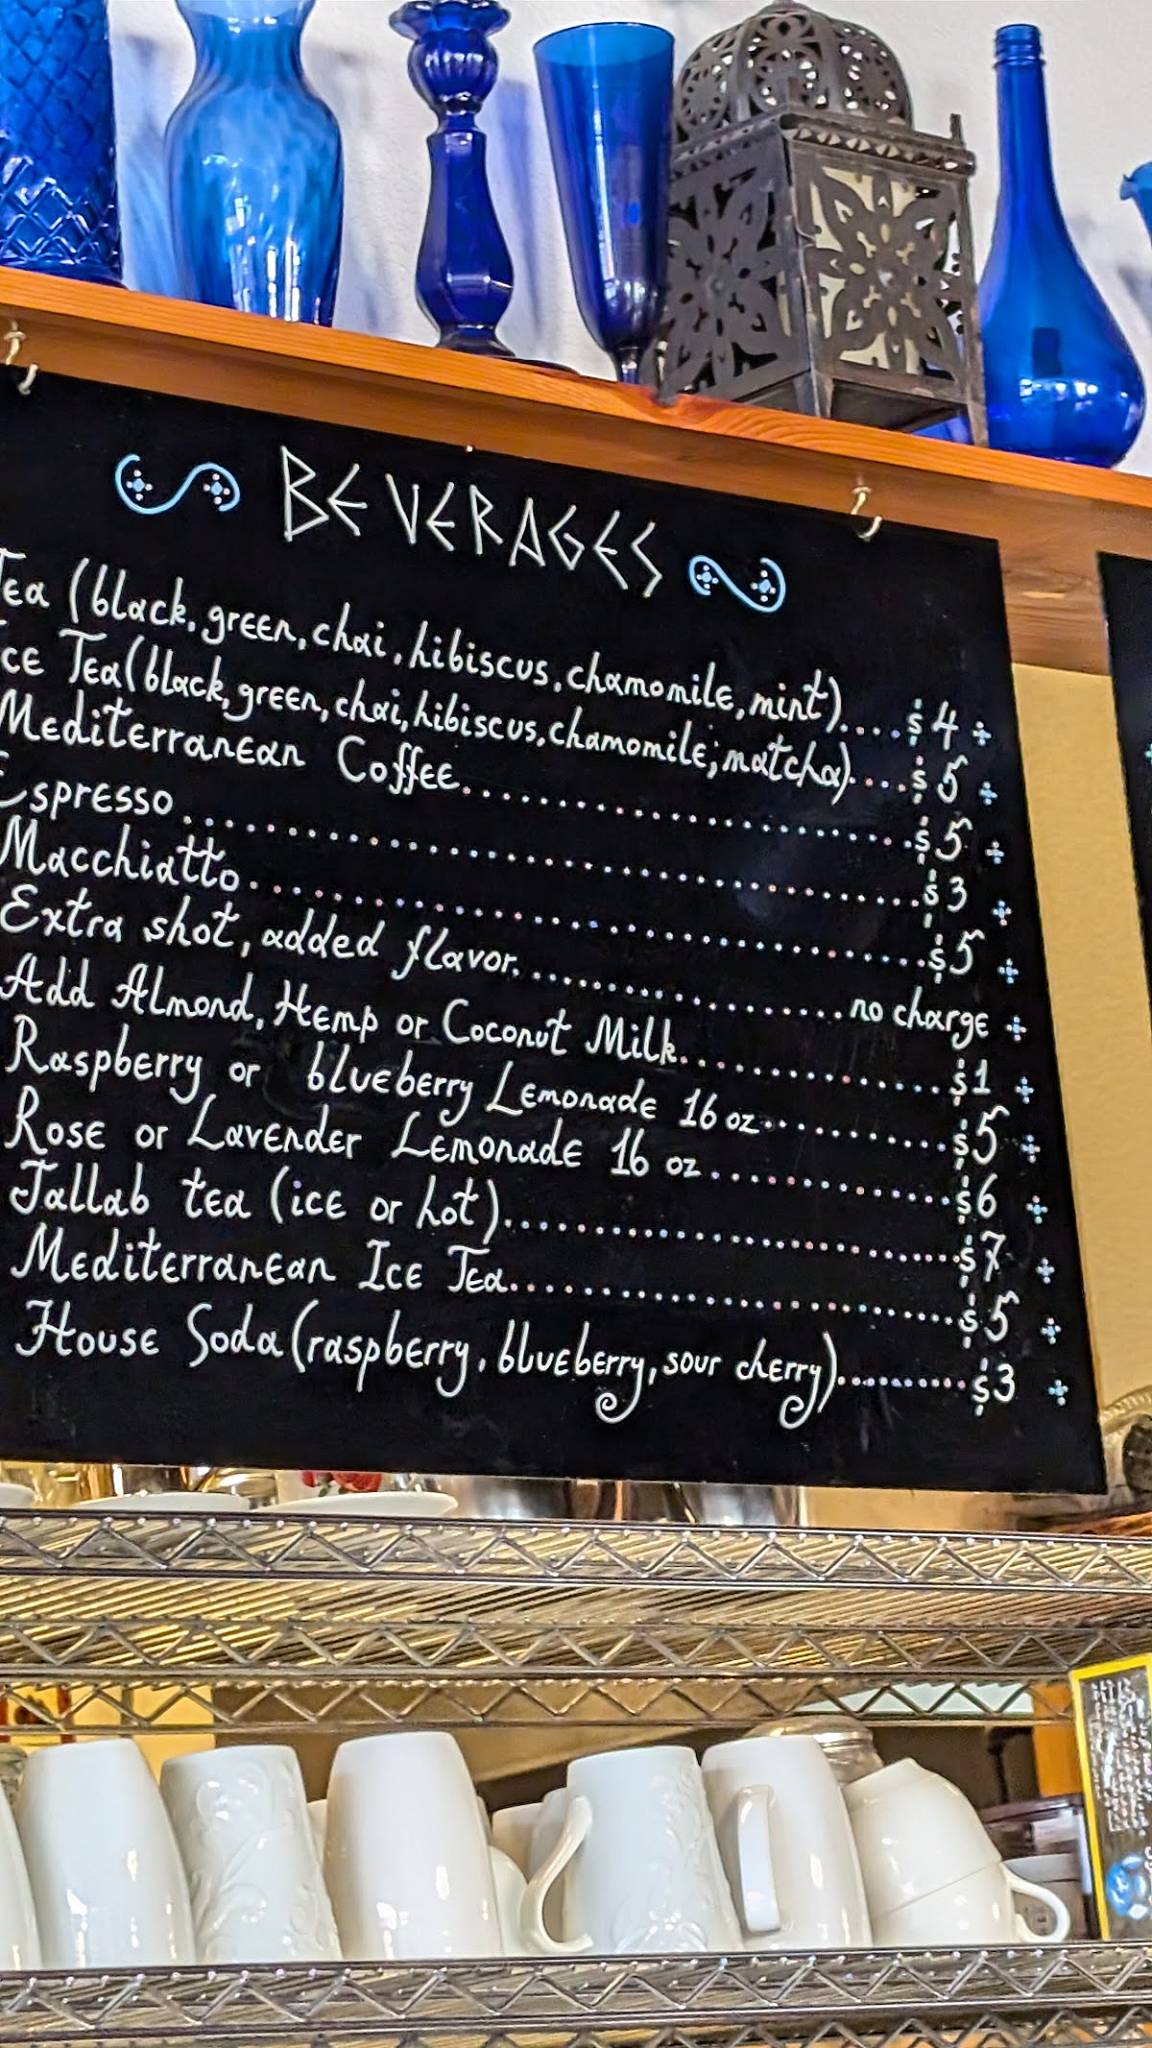 BEVERAGES
Tea (black, green, chai, hibiscus, chamomile, mint).....$4
Ice Tea (black, green, chai, hibiscus, chamomile, matcha)....$5
Mediterranean Coffee..............................$5
Espresso..............................$3
Macchiatto..............................$5
Extra shot, added flavor....................no charge
Add Almond, Hemp or Coconut Milk....................$1
Raspberry or blueberry Lemonade 16 oz..............$5
Rose or Lavender Lemonade 16 oz..............$6
Jallab tea (ice or hot)..............................$7
Mediterranean Ice Tea..............................$5
House Soda (raspberry, blueberry, sour cherry)..........$3